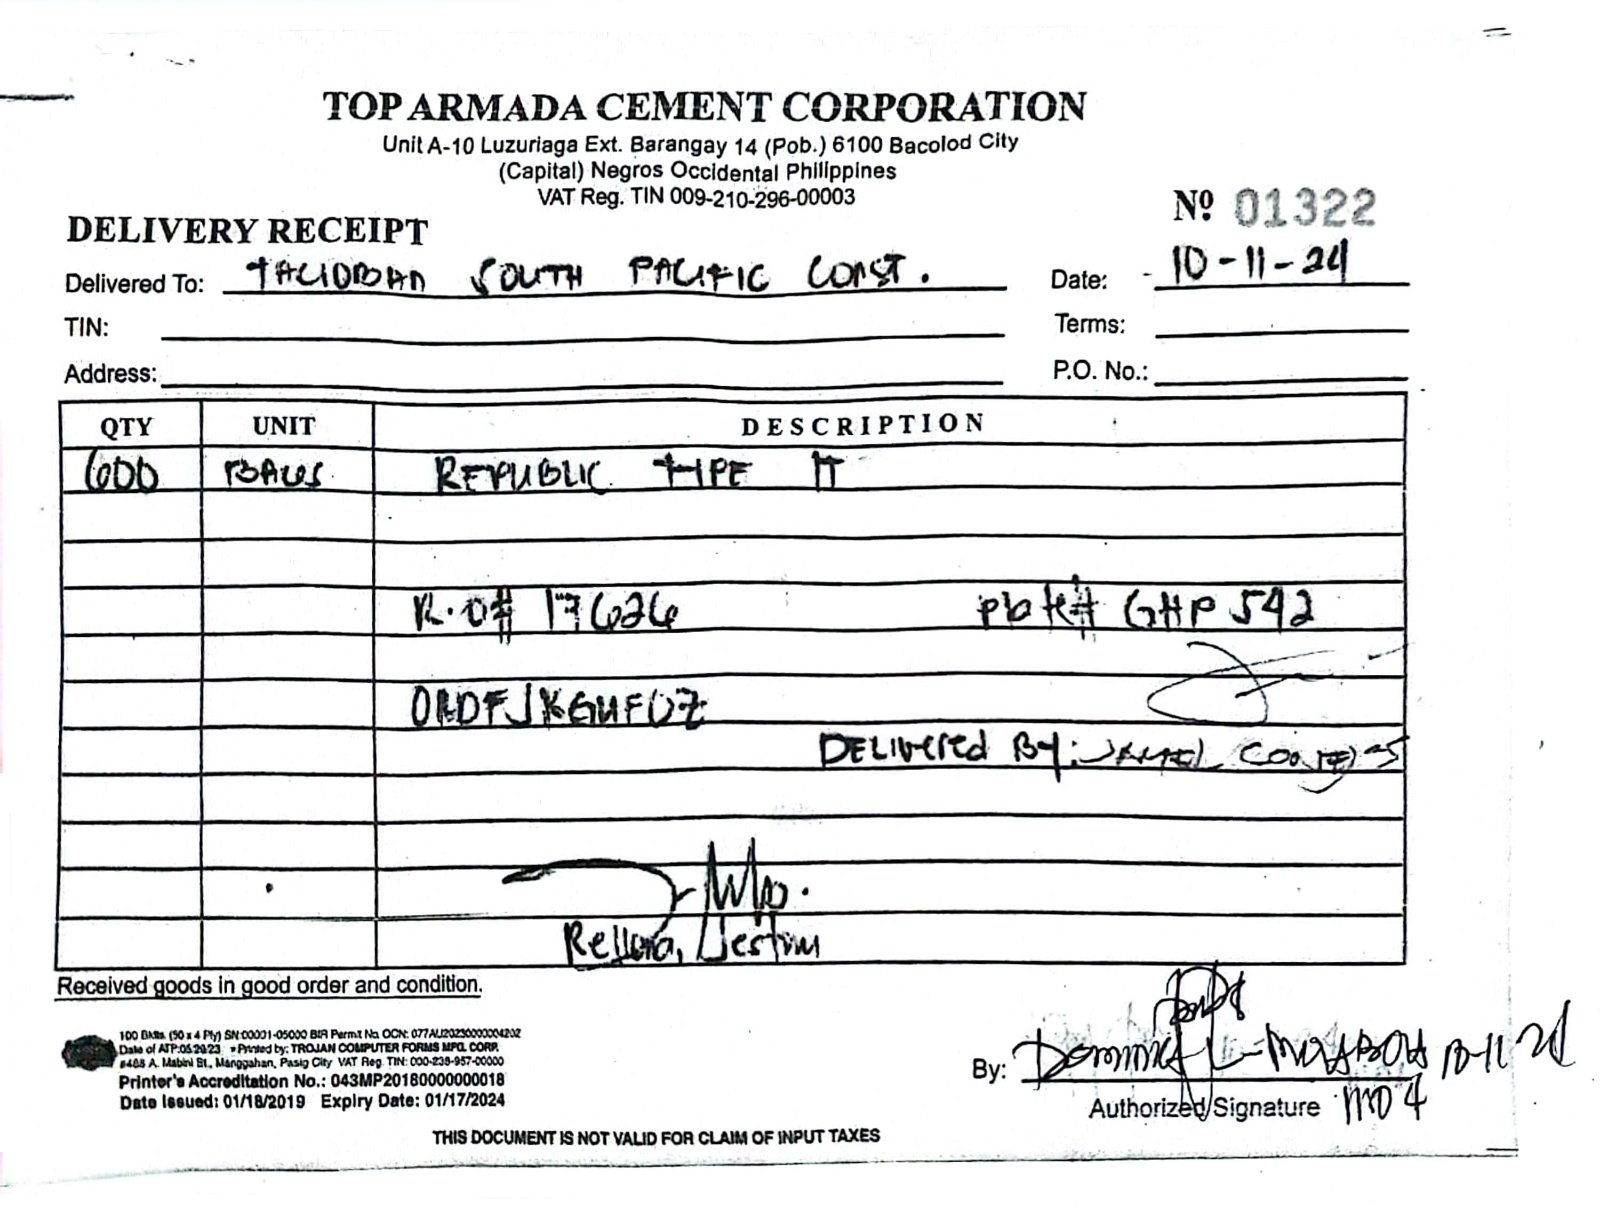 TOP ARMADA CEMENT CORPORATION
Unit A-10 Luzuriaga Ext. Barangay 14 (Pob.) 6100 Bacolod City
(Capital) Negros Occidental Philippines
VAT Reg. TIN 009-210-296-00003
Nº 01322
DELIVERY RECEIPT
Delivered To: TACLOBAN SOUTH PACIFIC CONST. Date: 10-11-24
TIN: Terms:
Address: P.O. No.:
QTY UNIT DESCRIPTION
600 BAGS REPUBLIC TYPE IT
R.O# 17626 Plate# GHP 542
DELIVERED By:
Received goods in good order and condition.
100 Bklts. (50 x 4 Ply) SN:00001-05000 BIR Permit No. OCN: 077AU20230000004202
Date of ATP:05.29.23 • Printed by: TROJAN COMPUTER FORMS MFG. CORP.
#488 A. Mabini St., Manggahan, Pasig City VAT Reg. TIN: 000-238-957-00000
Printer's Accreditation No.: 043MP20180000000018
Date Issued: 01/18/2019 Expiry Date: 01/17/2024
By: 10-11-24
Authorized Signature
THIS DOCUMENT IS NOT VALID FOR CLAIM OF INPUT TAXES